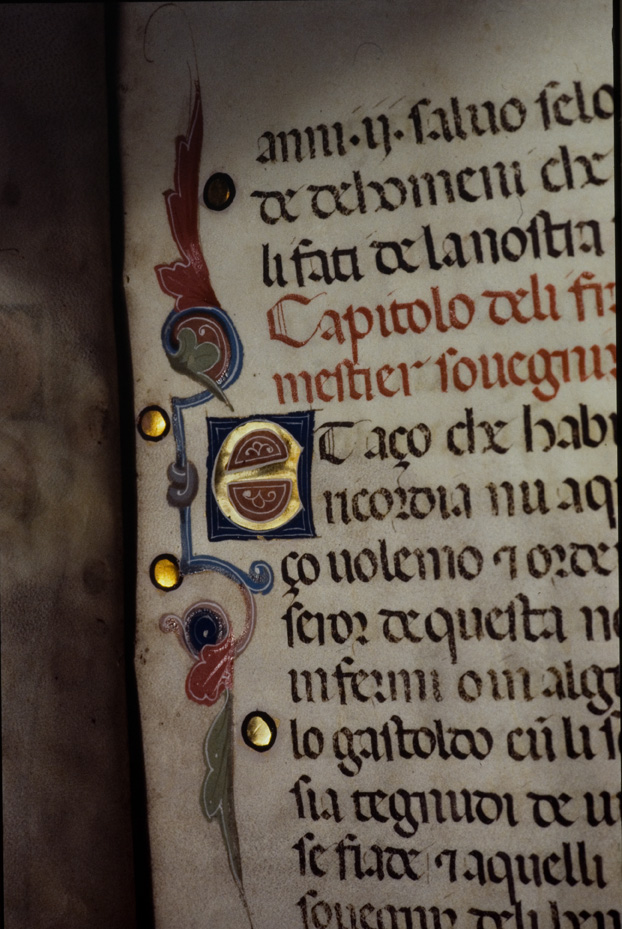 anni·ij· saluo selo
de dehomeni che
li fati de la nostra
Capitolo deli
mestier souegnir
ET aço che habi
ricordia nu aq
ço uolemo ⁊ orde
seror de questa n
infermi o in alg
lo gastoldo cũ li
sia tegnudi de u
se fiade ⁊ aquelli
souegnir deli ben